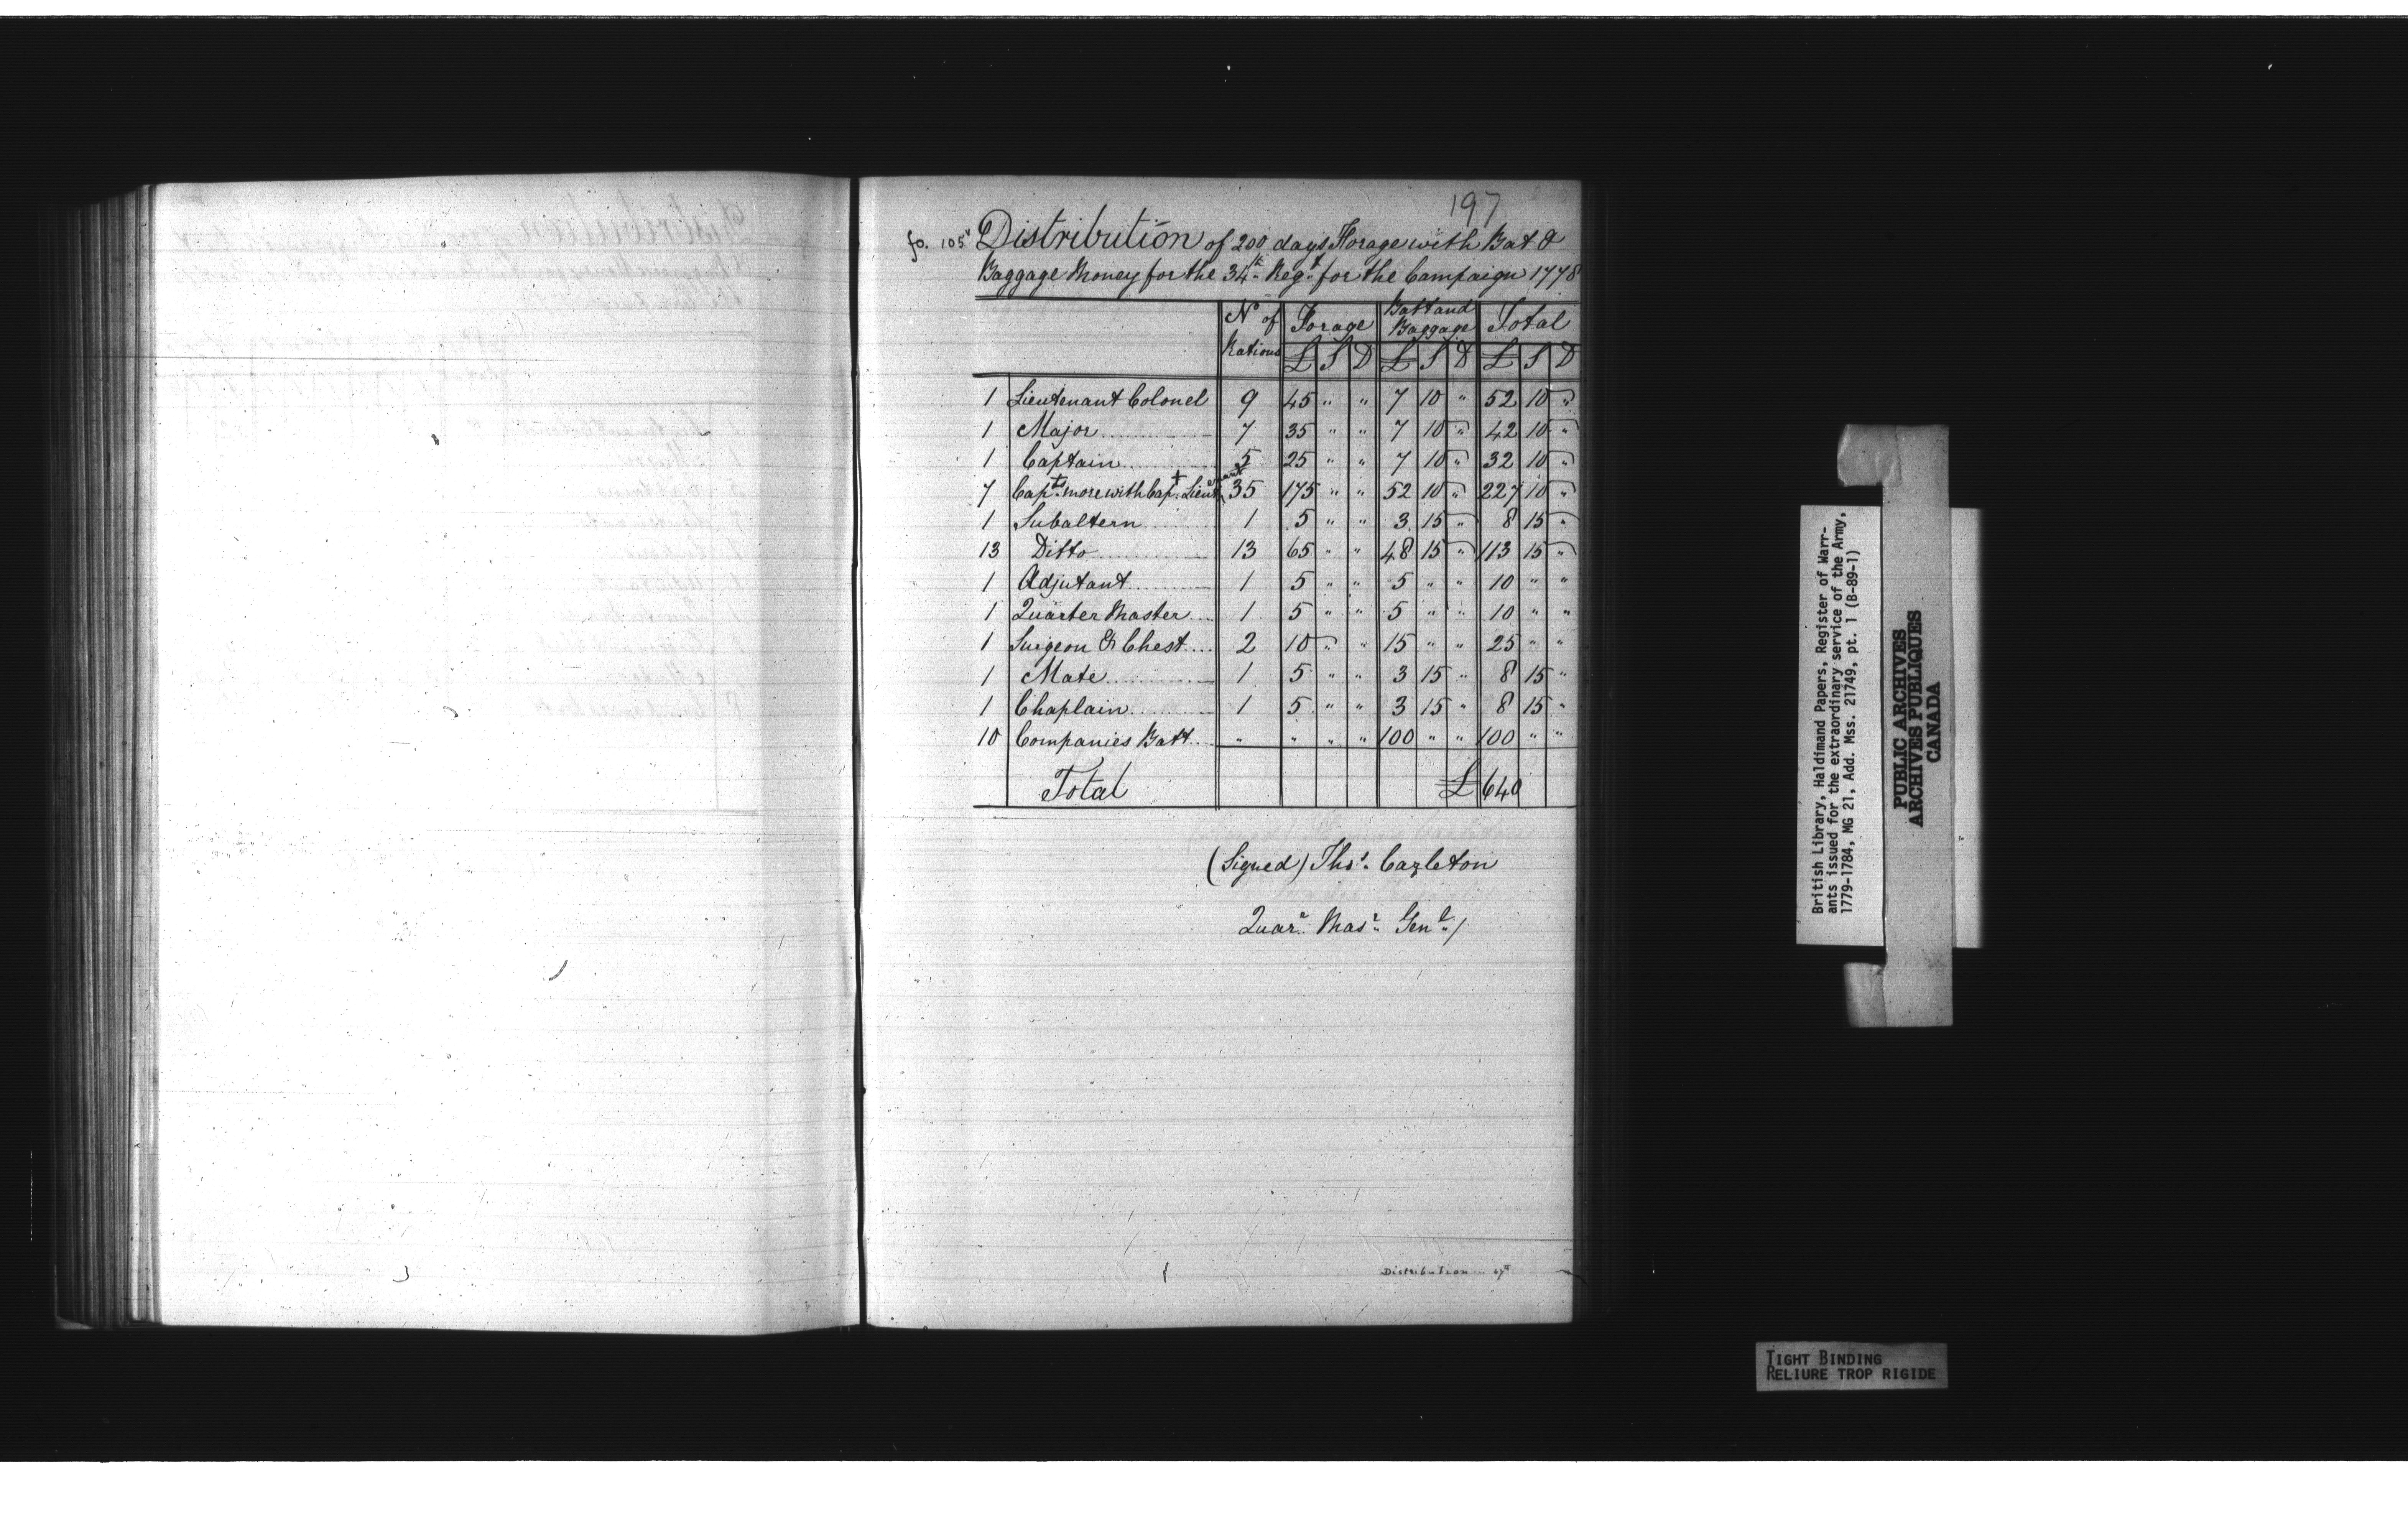 197
fo. 105v Distribution of 200 days Forage with Bat &
Baggage Money for the 34th Regt for the Campaign 1778
No of Rations | Forage | Batt and Baggage | Total
£ S D | £ S D | £ S D
1 Lieutenant Colonel 9 45 " " 7 10 " 52 10 "
1 Major 7 35 " " 7 10 " 42 10 "
1 Captain 5 25 " " 7 10 " 32 10 "
7 Capts more with Capt Lieutenant 35 175 " " 52 10 " 227 10 "
1 Subaltern 1 5 " " 3 15 " 8 15 "
13 Ditto 13 65 " " 48 15 " 113 15 "
1 Adjutant 1 5 " " 5 " " 10 " "
1 Quarter Master 1 5 " " 5 " " 10 " "
1 Surgeon & Chest 2 10 " " 15 " " 25 " "
1 Mate 1 5 " " 3 15 " 8 15 "
1 Chaplain 1 5 " " 3 15 " 8 15 "
10 Companies Batt " " " " 100 " " 100 " "
Total £ 640
(Signed) Thos. Carleton
Quarr. Masr. Genl/
Distribution
British Library, Haldimand Papers, Register of Warr-
ants issued for the extraordinary service of the Army,
1779-1784, MG 21, Add. Mss. 21749, pt. 1 (B-89-1)
PUBLIC ARCHIVES
ARCHIVES PUBLIQUES
CANADA
TIGHT BINDING
RELIURE TROP RIGIDE